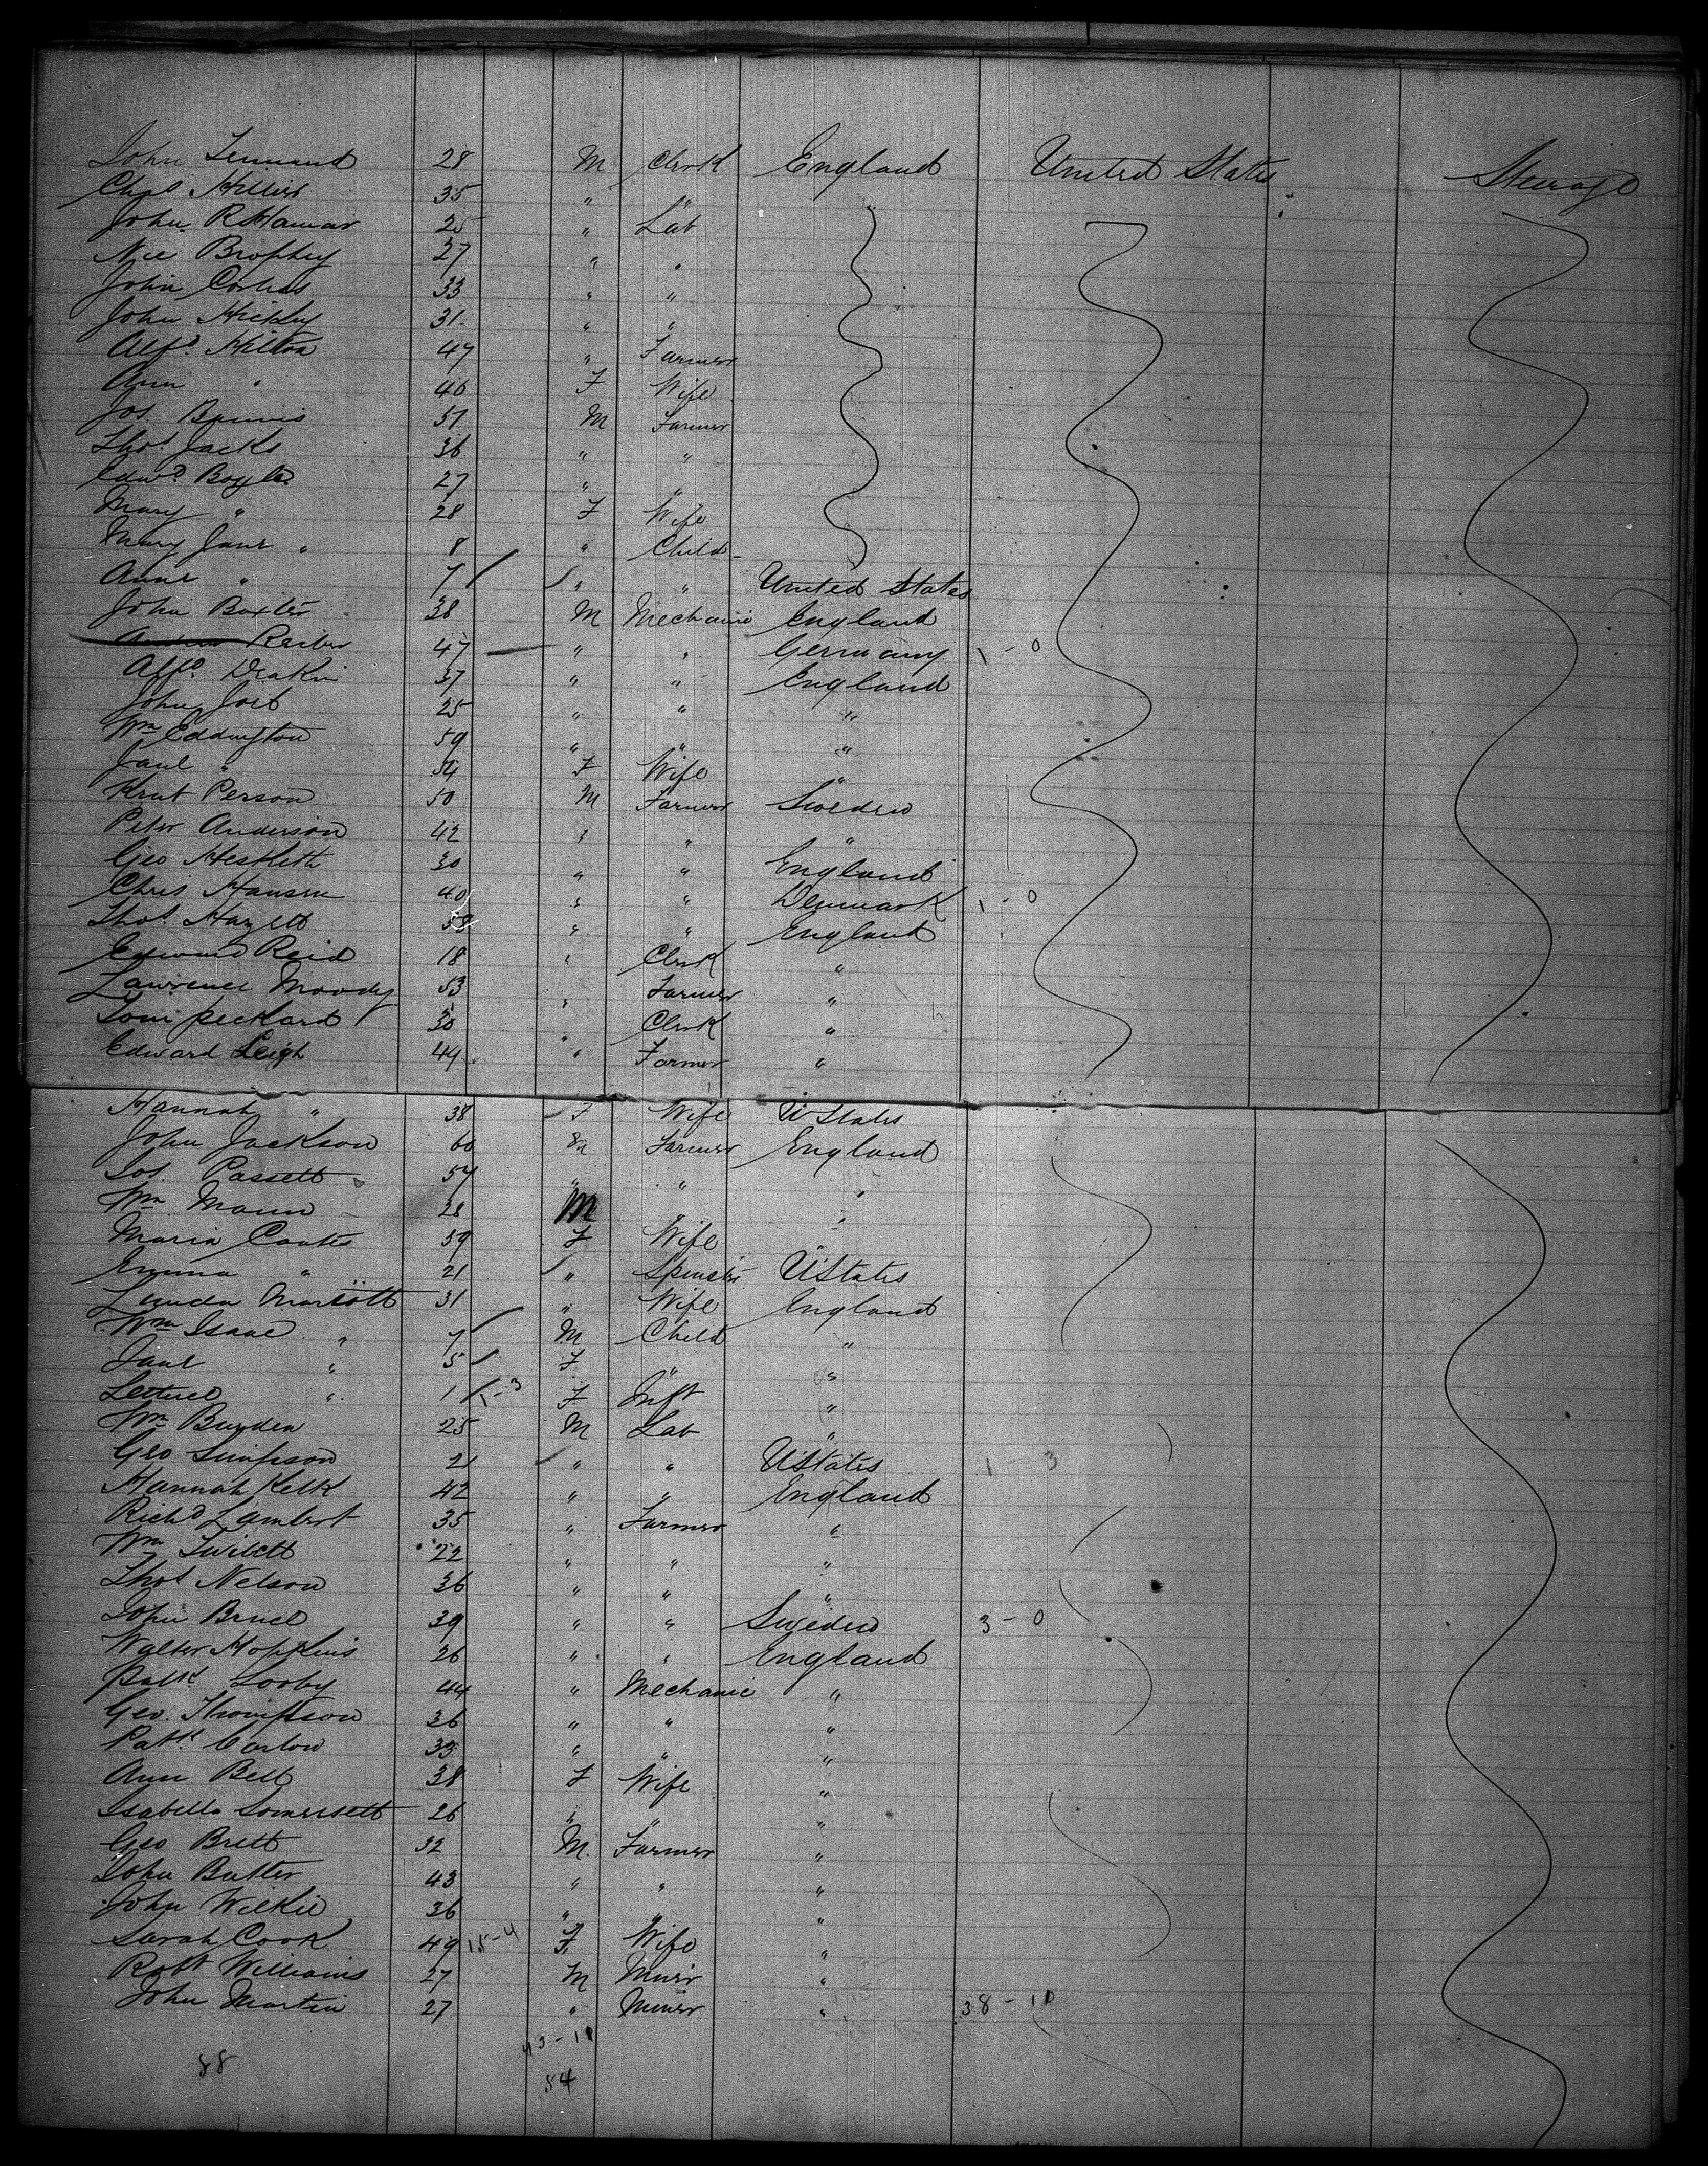 John Tennand 28 M Clerk England United States Steerage
Chas Hillier 35 " " "
John R Hamar 25 " Lab
Nic Brophy 27 " "
John Corless 33 " "
John Hickley 31 " "
Alfd. Hilton 47 " Farmer
Ann " 46 F Wife
Jos. 57 M Farmer
Thos. Jacks 36 " "
Edwd. Boyle 27 " "
Mary " 28 F Wife
Mary Jane " 8 " Child
Anne " 7 " " United States
John Baxter 38 M Mechanic England
Reiber 47 " " Germany 1 - 0
Alfd. Deakin 37 " " England
John Jost 25 " " "
Wm Eddington 59 " " "
Jane " 54 F Wife "
Knut Person 50 M Farmer Sweden
Peter Anderson 42 " " "
Geo Hesketh 30 " " England
Chris Hansen 40 " " Denmark 1 - 0
Thos. Hazell 58 " " England
Edward Reid 18 " Clerk "
Lawrence Moody 53 " Farmer "
Tom peckard 30 " Clerk "
Edward Leigh 44 " Farmer "
Hannah " 38 F Wife U States
John Jackson 60 M Farmer England
Jos. Passett 57 " " "
Wm Mann 28 M " "
Maria Coates 59 F Wife "
Emma " 21 " Spinster U States
31 " Wife England
Wm Isaac " 7 M Child "
Jane " 5 F " "
Lettuce " 1 1-3 F Inft "
Wm Burden 25 M Lab "
Geo Simpson 21 " " U States 1 3
Hannah Kelk 42 " " England
Richd Lambert 35 " Farmer "
Wm 22 " " "
Thos Nelson 36 " " "
John Bruce 39 " " Sweden 3 - 0
Walter Hopkins 26 " " England
Patk. Looby 44 " Mechanic "
Geo. Thompson 36 " " "
Patk. Carlow 33 " " "
Ann Bell 38 F Wife "
Isabella Somersett 26 " " "
Geo Brett 32 M. Farmer "
John Butter 43 " " "
John Wilkie 36 " " "
Sarah Cook 49 15-4 F. Wife "
Robt Williams 27 M Miner "
John Martin 27 " Miner " 38 - 10
43-11
58 54